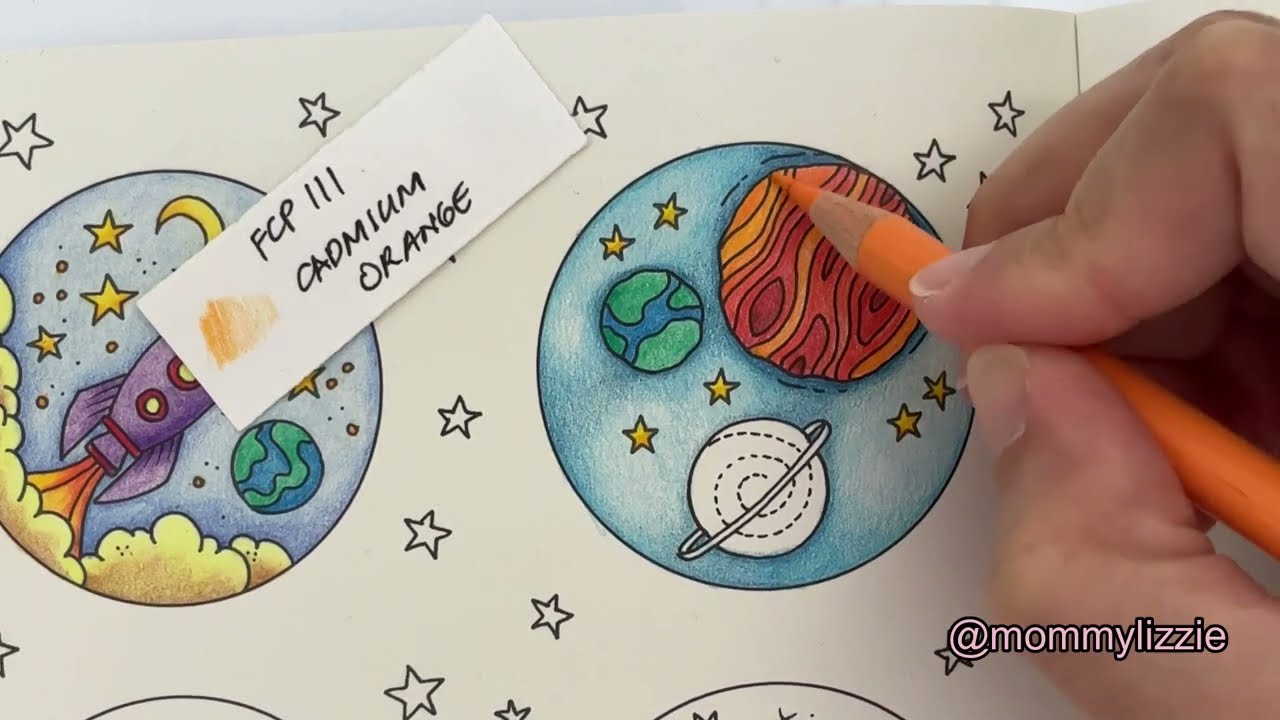 FCP 111
CADMIUM
ORANGE
@mommylizzie